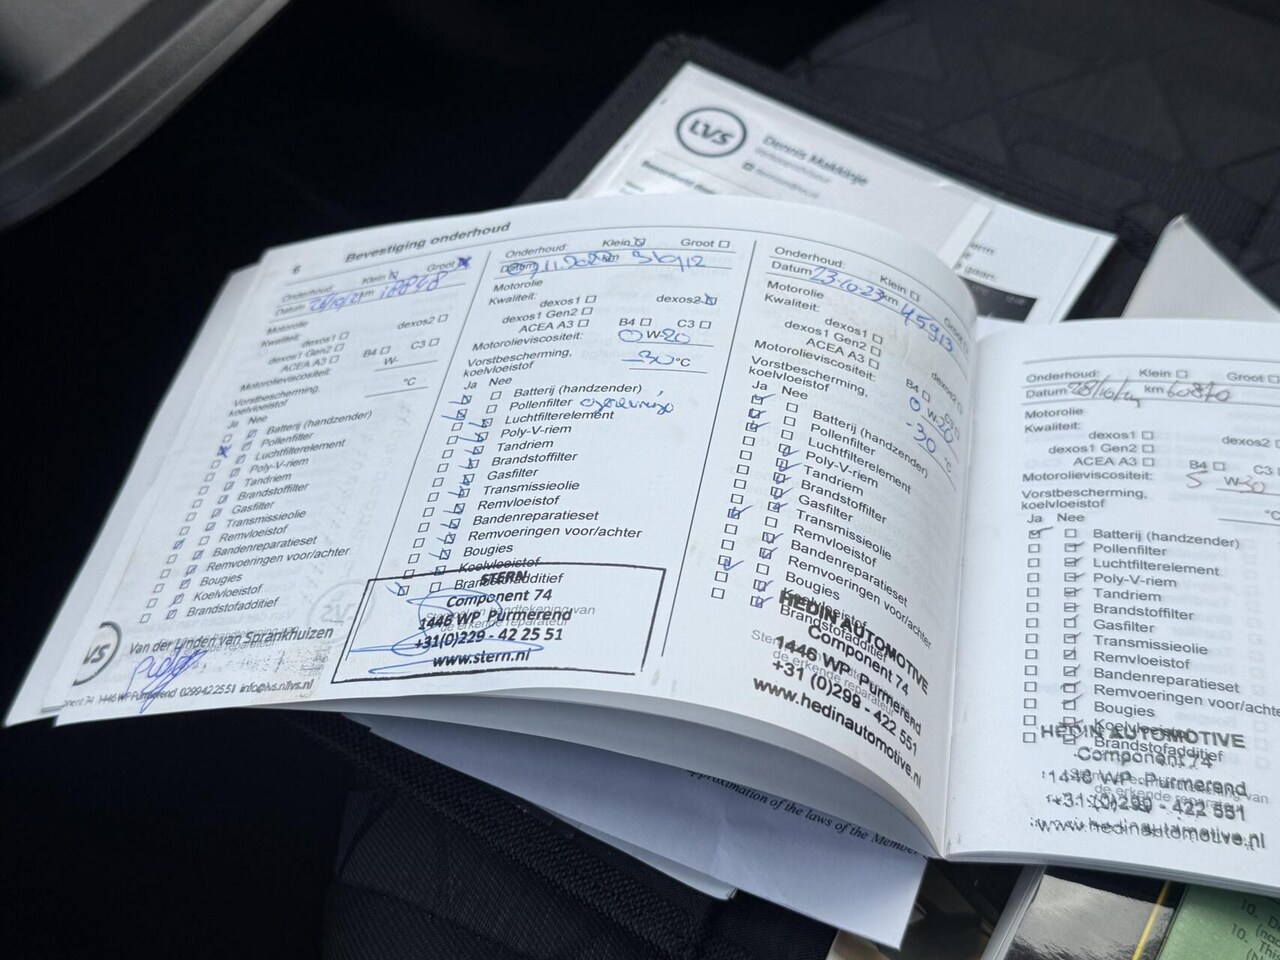 LVS
Dennis Makkinje
6 Bevestiging onderhoud
Onderhoud: Klein Groot
Datum km 18848
Motorolie
Kwaliteit: dexos1 dexos2
dexos1 Gen2
ACEA A3 B4 C3
Motorolieviscositeit: W-
Vorstbescherming,
koelvloeistof °C
Ja Nee
Batterij (handzender)
Pollenfilter
Luchtfilterelement
Poly-V-riem
Tandriem
Brandstoffilter
Gasfilter
Transmissieolie
Remvloeistof
Bandenreparatieset
Remvoeringen voor/achter
Bougies
Koelvloeistof
Brandstofadditief
Van der Linden van Sprankhuizen
1446 WP Purmerend 0299 42 25 51 info@lvs.nl lvs.nl
Onderhoud: Klein Groot
Datum km 31012
Motorolie
Kwaliteit: dexos1 dexos2
dexos1 Gen2
ACEA A3 B4 C3
Motorolieviscositeit: 0 W-20
Vorstbescherming,
koelvloeistof -30 °C
Ja Nee
Batterij (handzender)
Pollenfilter
Luchtfilterelement
Poly-V-riem
Tandriem
Brandstoffilter
Gasfilter
Transmissieolie
Remvloeistof
Bandenreparatieset
Remvoeringen voor/achter
Bougies
Koelvloeistof
Brandstofadditief
STERN
Component 74
1446 WP Purmerend
+31(0)229 - 42 25 51
www.stern.nl
Onderhoud: Klein Groot
Datum 23-10-23 km 45913
Motorolie
Kwaliteit: dexos1 dexos2
dexos1 Gen2
ACEA A3 B4
Motorolieviscositeit: 0 W-20
Vorstbescherming,
koelvloeistof -30 °C
Ja Nee
Batterij (handzender)
Pollenfilter
Luchtfilterelement
Poly-V-riem
Tandriem
Brandstoffilter
Gasfilter
Transmissieolie
Remvloeistof
Bandenreparatieset
Remvoeringen voor/achter
Bougies
Koelvloeistof
Brandstofadditief
HEDIN AUTOMOTIVE
Component 74
1446 WP Purmerend
+31 (0)299 - 422 551
www.hedinautomotive.nl
Onderhoud: Klein Groot
Datum 28/10/24 km 60870
Motorolie
Kwaliteit:
dexos1 dexos2
dexos1 Gen2
ACEA A3 B4 C3
Motorolieviscositeit: 5 W-30
Vorstbescherming,
koelvloeistof
Ja Nee
Batterij (handzender)
Pollenfilter
Luchtfilterelement
Poly-V-riem
Tandriem
Brandstoffilter
Gasfilter
Transmissieolie
Remvloeistof
Bandenreparatieset
Remvoeringen voor/achter
Bougies
Koelvloeistof
Brandstofadditief
HEDIN AUTOMOTIVE
Component 74
1446 WP Purmerend
+31 (0)299 - 422 551
www.hedinautomotive.nl
approximation of the laws of the Member